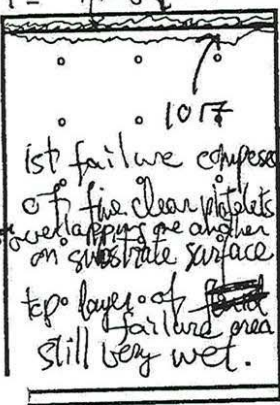 1017
1st failure composed
of fine clear platelets
overlapping one another
on substrate surface
top layer of
failure area
still very wet.